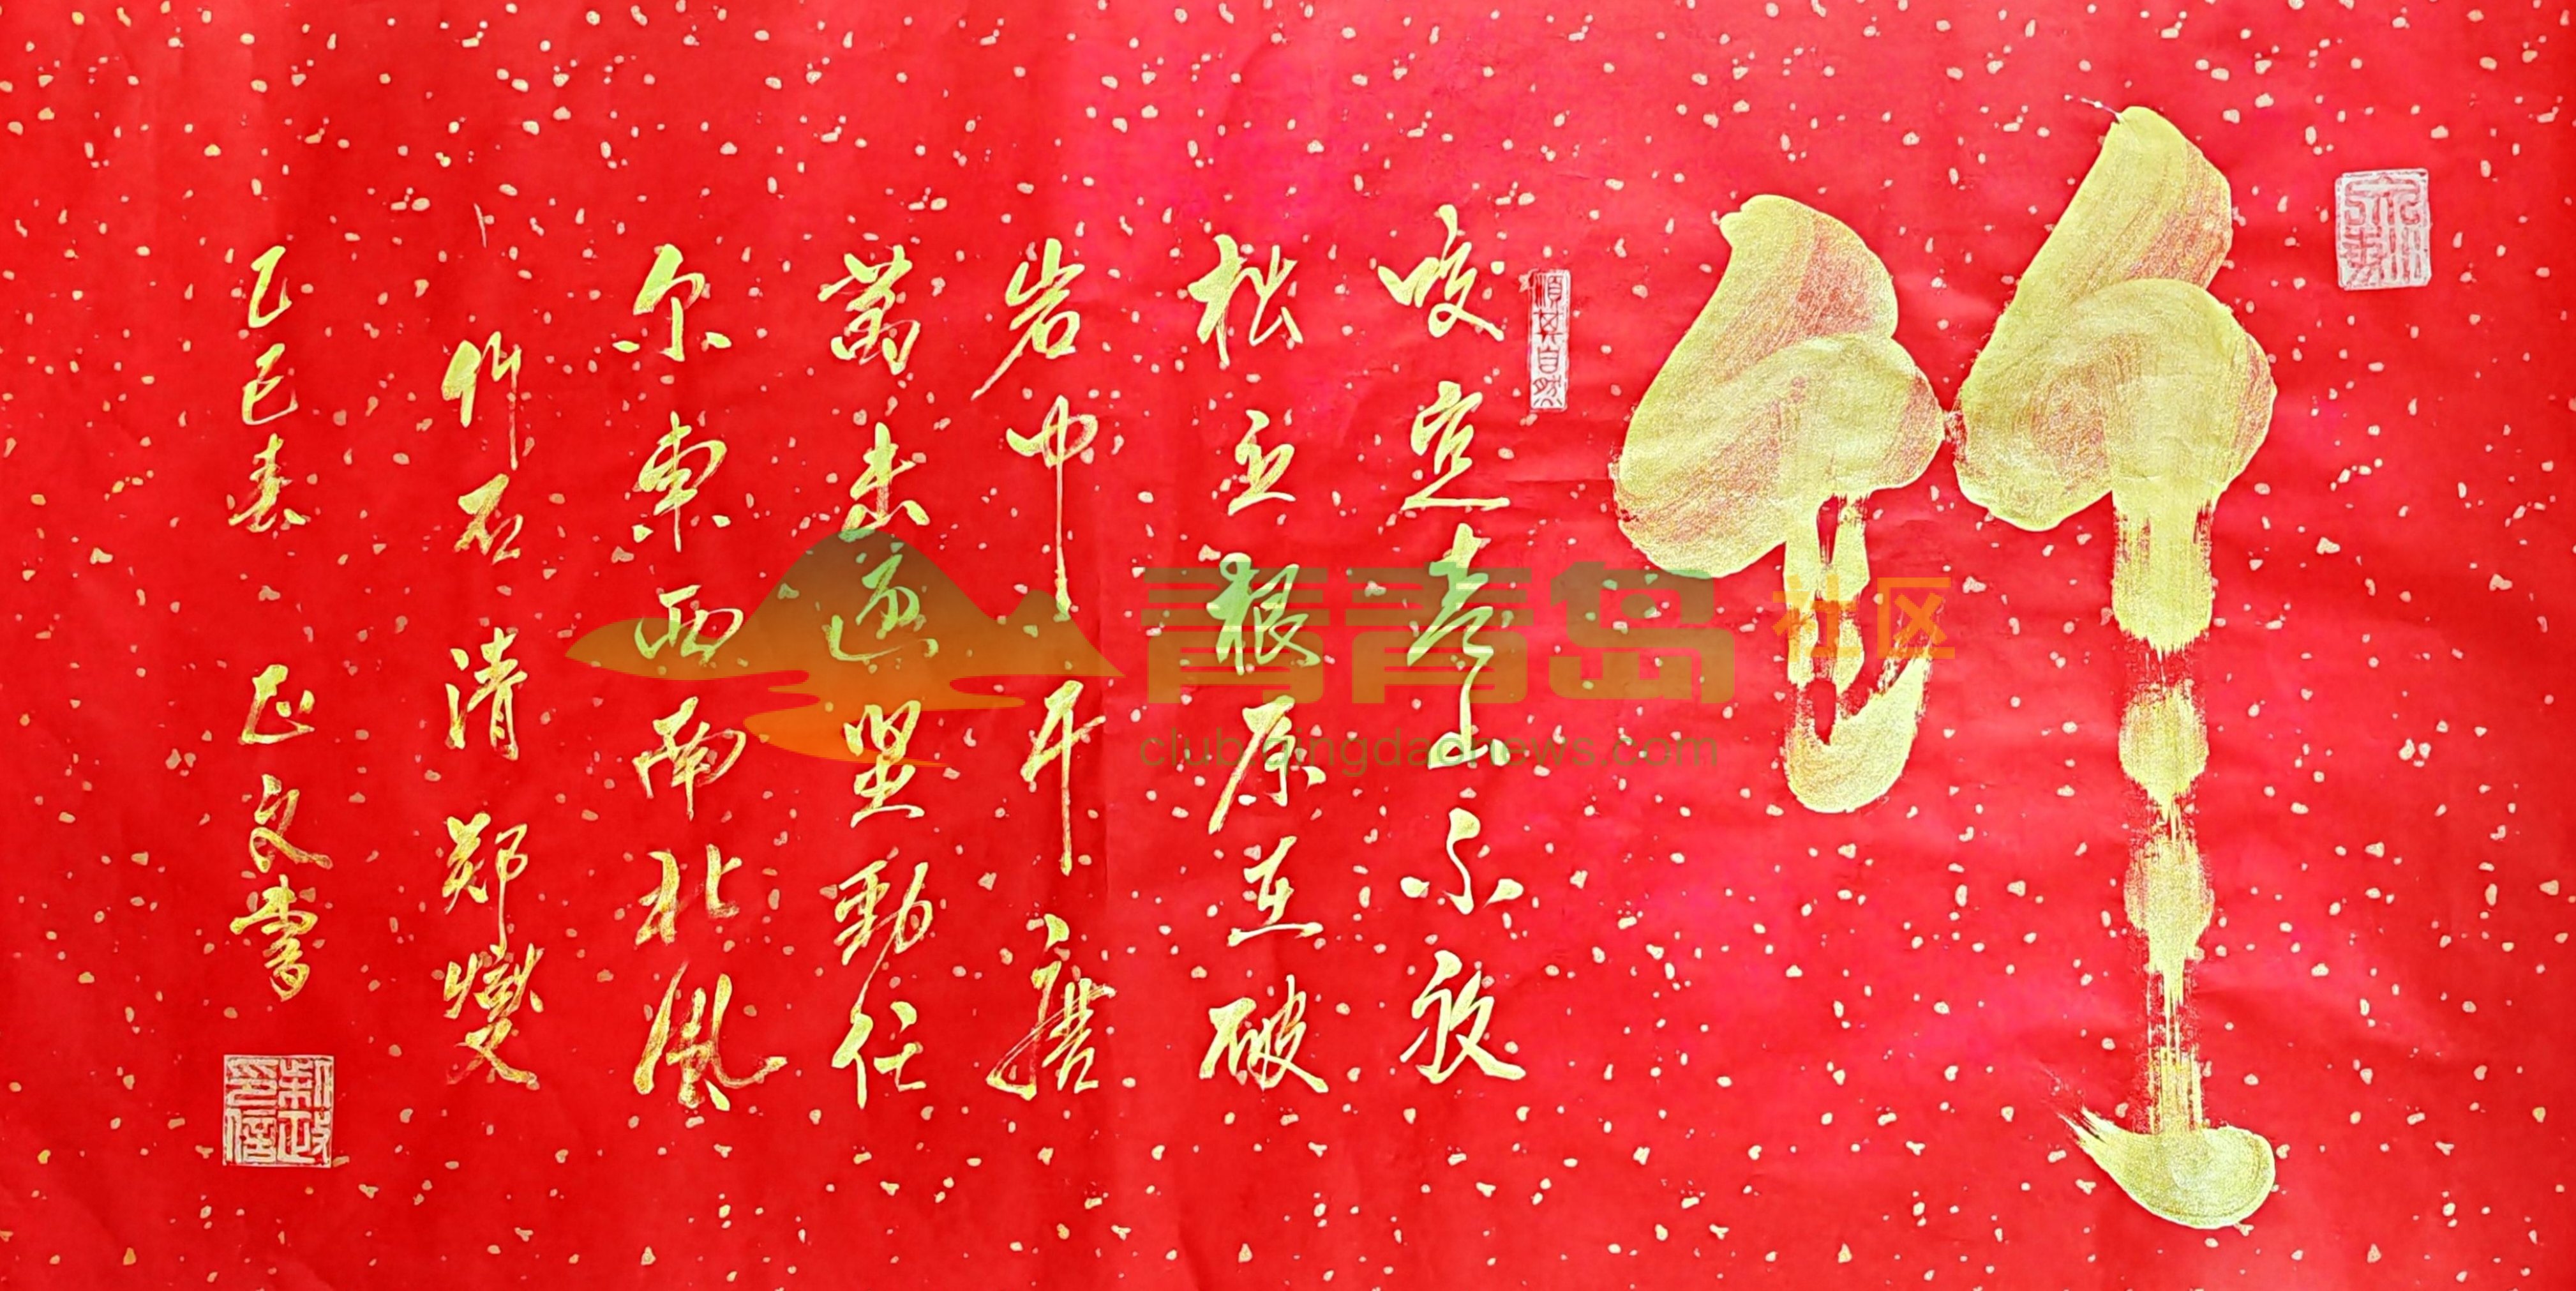 竹
順其自然
咬定青山不放
松立根原在破
岩中千磨
萬击还坚勁任
尔東西南北風
竹石 清 郑燮
乙巳春 正良書
青青岛 社区
club.qingdaonews.com